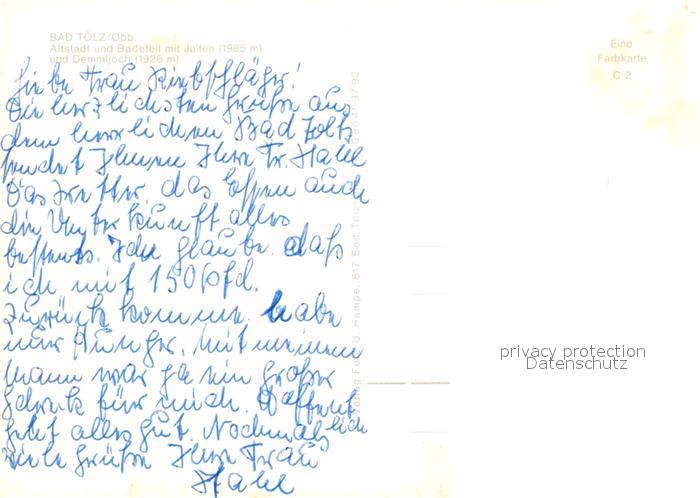 BAD TÖLZ/Obb.
Altstadt und Badeteil mit Juifen (1985 m)
und Demmljoch (1926 m)
Eine
Farbkarte
C 2
Liebe Frau
Die herzlichsten Grüße aus
dem herrlichen Bad Tölz
sendet Ihnen Ihre Fr. Hahl
Das Wetter, das Essen auch
die Unterkunft alles
bestens. Ich glaube daß
ich mit 150 Pfd.
zurück komme. habe
nur Hunger. Mit meinem
Mann war ja ein großer
Schreck für mich. Hoffent
lich
geht alles gut. Nochmals
viele Grüße Ihre Frau
Hahl
Verlag Foto U. Hampe, 817 Bad Tölz
privacy protection
Datenschutz